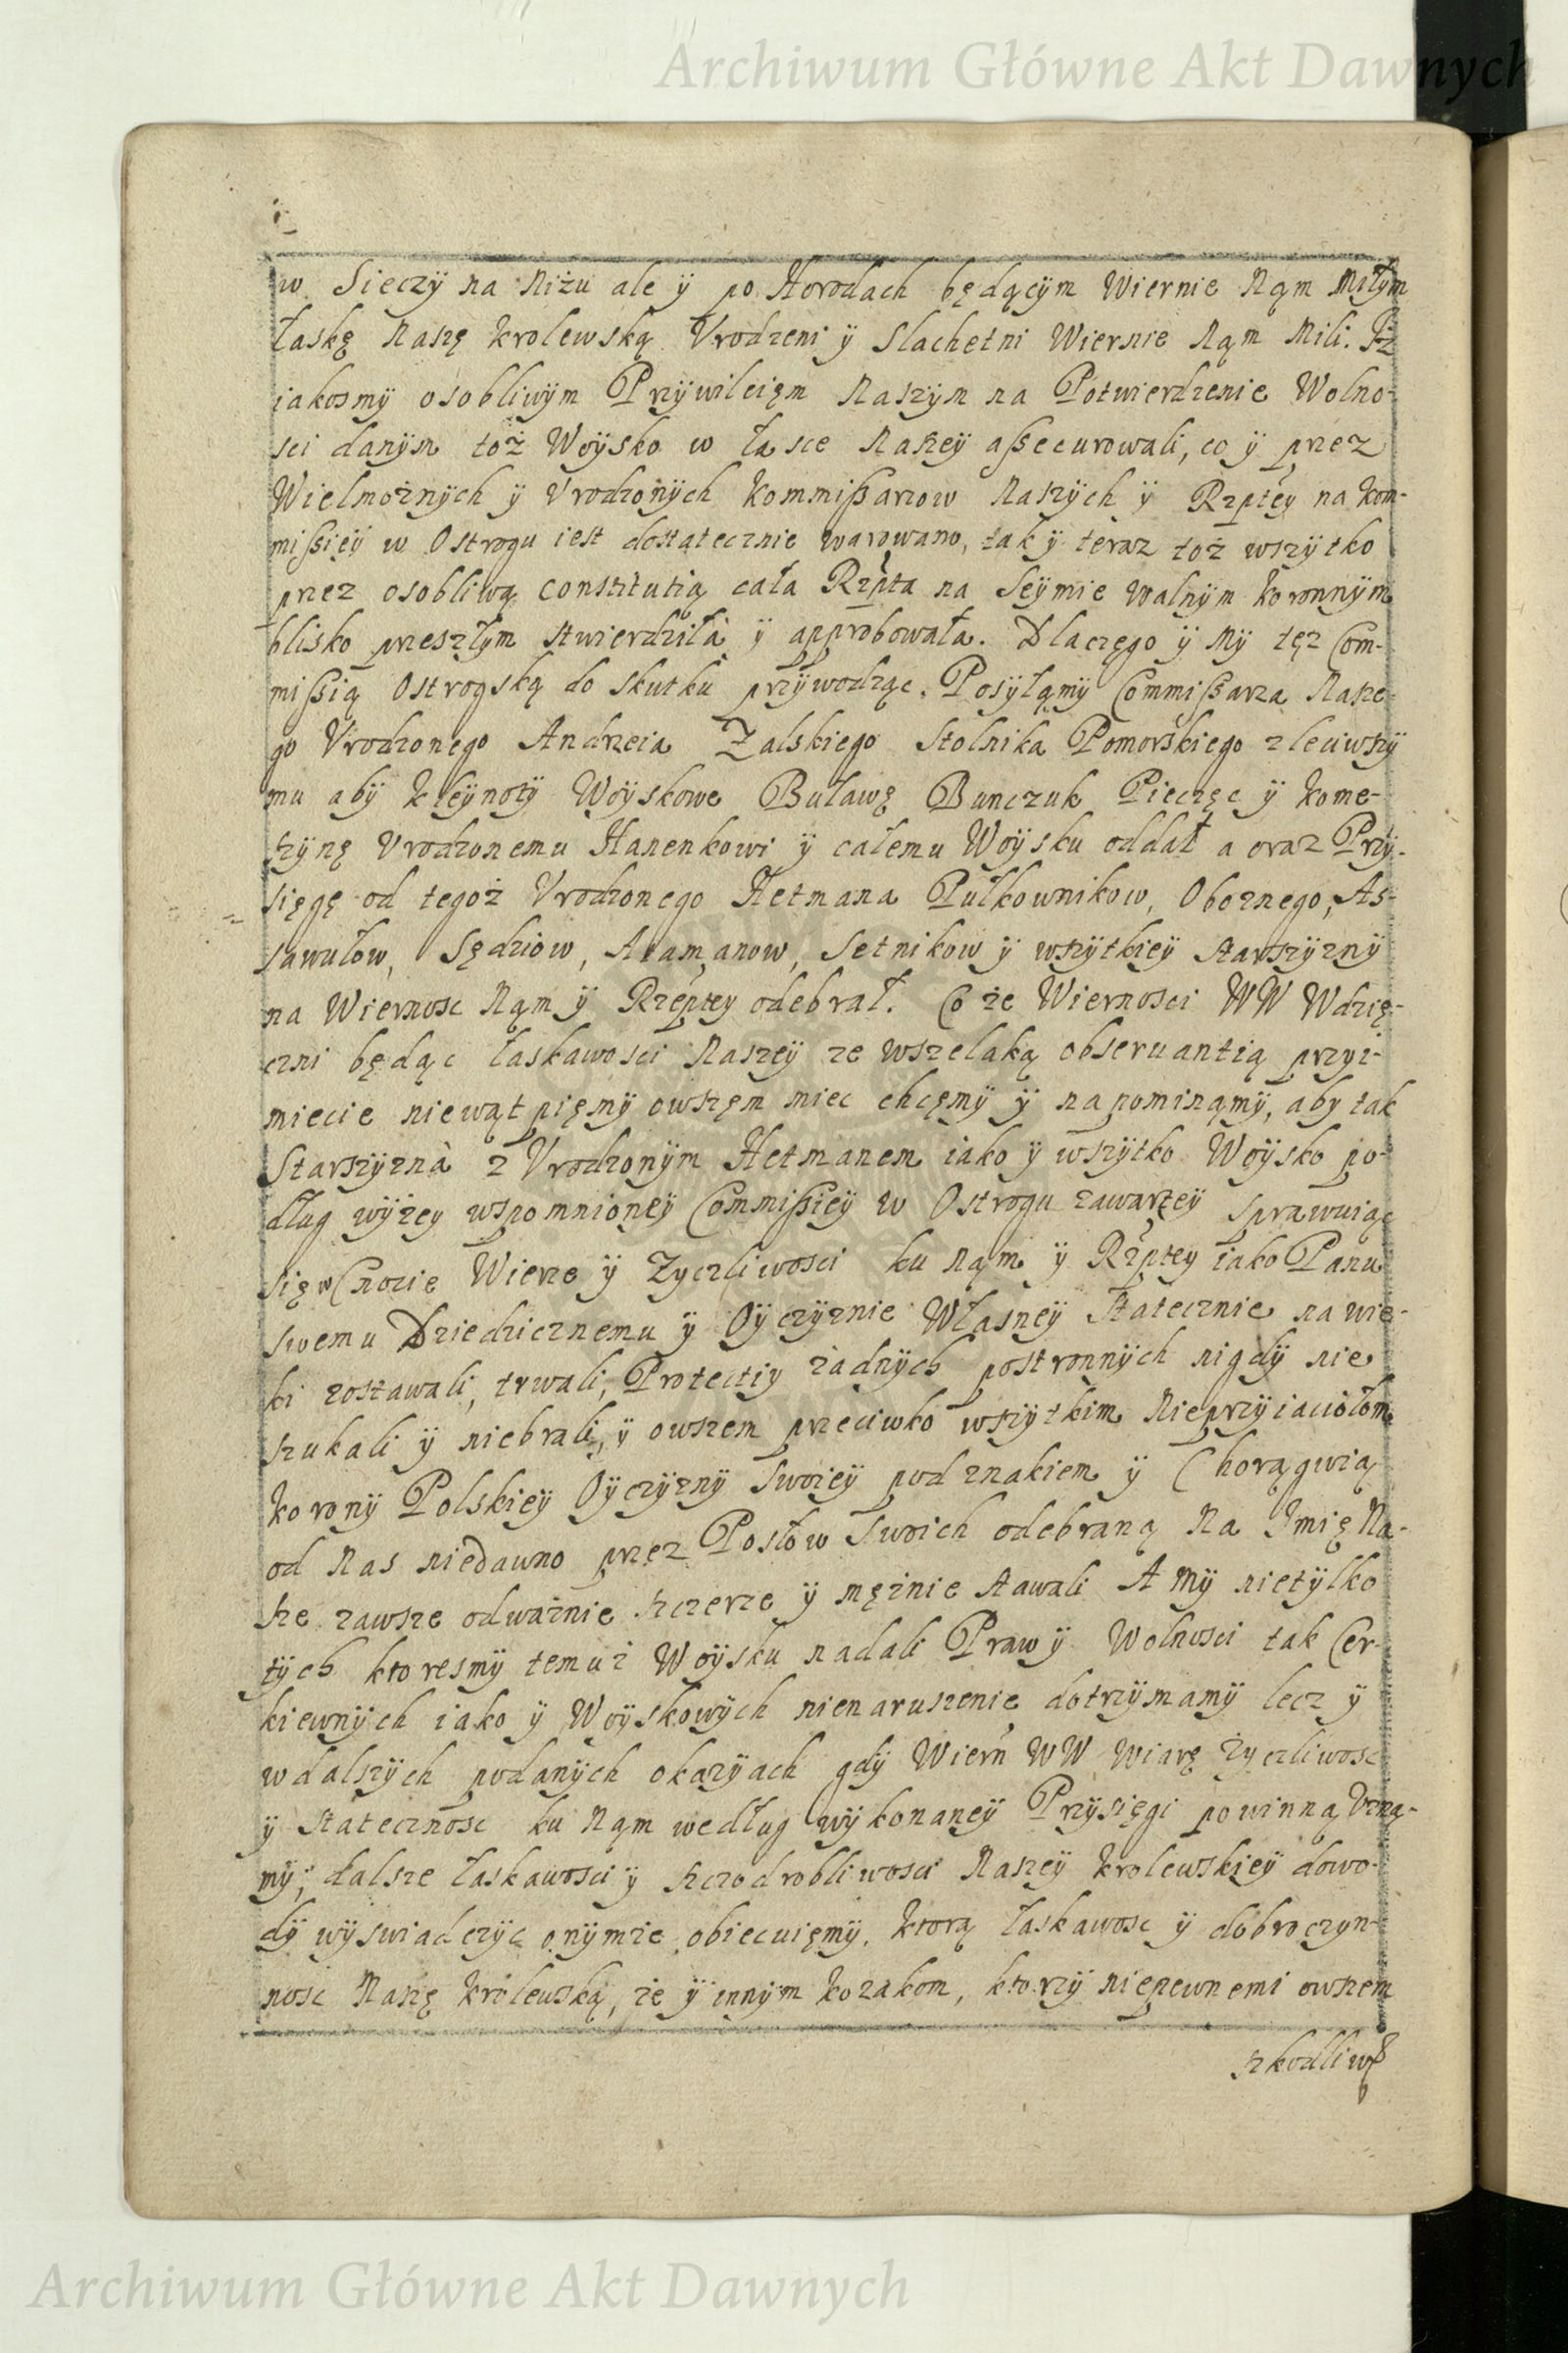 Archiwum Główne Akt Dawnych
w Sieczÿ na Niżu ale ÿ po Horodach będącÿm Wiernie Nąm Miłÿm
łaskę Naszę Krolewską. Vrodzeni ÿ Slachetni Wiernie Nąm Mili. Iż
iakosmÿ osobliwÿm Przÿwileięm Naszÿm na Potwierdzenie Wolno-
sci danÿm toż Woÿsko w łasce Naszeÿ aßecurowali, co ÿ przez
Wielmożnÿch ÿ Vrodzonÿch Kommißarzow Naszÿch ÿ Rzptęÿ na Kom-
mißieÿ w Ostrogu iest dostątecznie warowano, tak ÿ teraz toż wszÿtko
przez osobliwą constitutią cała Rzpta na Seÿmie walnÿm Koronnÿm
blisko przeszłÿm stwierdziłà ÿ approbowała. Dlaczęgo ÿ Mÿ tęż Com-
mißią Ostrogską do skutku przÿwodząc. Posÿłąmÿ Commißarza Nasze-
go Vrodzonego Andrzeia Zalskiego Stolnika Pomorskiego zleciwszÿ
mu abÿ kleÿnotÿ Woÿskowe Buławę Bunczuk Pieczęc ÿ kome-
szÿnę Vrodzonemu Hanenkowi ÿ całemu Woÿsku oddał a oraz Przÿ-
sięgę od tegoż Vrodzonego Hetmana Pułkownikow, Oboznego, As-
sawułow, Sędziow, Atamanow, Setnikow ÿ wszÿtkieÿ starszÿznÿ
na Wiernosc Nąm ÿ Rzeptey odebrał. Co że Wiernosci WW Wdzię-
czni będąc łaskawosci Naszeÿ ze wszelaką obseruantią przyi-
miecie niewątpięmÿ owszęm miec chcęmÿ ÿ napominąmÿ, aby tak
Starszÿznà z Vrodzonÿm Hetmanem iako ÿ wszÿtko Woÿsko po-
dług wÿżey wspomnioneÿ Commißieÿ w Ostrogu zawarteÿ sprawuiąc
się w Cnocie Wierze ÿ Zyczliwosci ku Nąm ÿ Rzptey iako Panu
swemu Dziedzicznemu ÿ Oÿczÿznie Własneÿ statecznie na wie-
ki zostawali, trwali, Protectiy żadnÿch postronnÿch nigdÿ nie
szukali ÿ niebrali, ÿ owszem przeciwko wszÿtkim Nieprzÿiaciołom
Koronÿ Polskieÿ Oÿczÿznÿ Swoieÿ pod znakiem ÿ Chorągwią
od Nas niedawno przęz Posłow Swoich odebraną Na Imię Na-
sze zawsze odważnie szczerze ÿ mężnie stawali A Mÿ nietÿlko
tÿch ktoresmÿ temuż Woÿsku nadali Praw ÿ Wolnosci tak Cer-
kiewnÿch iako ÿ Woÿskowÿch nienaruszenie dotrzÿmamÿ lecz ÿ
wdalszÿch podanÿch okazÿach gdÿ Wiern WW wiarę Zyczliwosc
ÿ statecznosc ku Nąm według wÿkonaneÿ Przÿsięgi powinną Vzną-
mÿ; dalsze łaskawosci ÿ szczodrobliwosci Naszeÿ Krolewskieÿ dowo-
dÿ wÿswiadczÿc onÿmże obiecuięmÿ. ktorą łaskawosc ÿ dobroczyn-
nosc Naszę Królewską, że ÿ innÿm Kozakom, ktorzÿ niepewnemi owszem
szkodliwy
Archiwum Główne Akt Dawnych